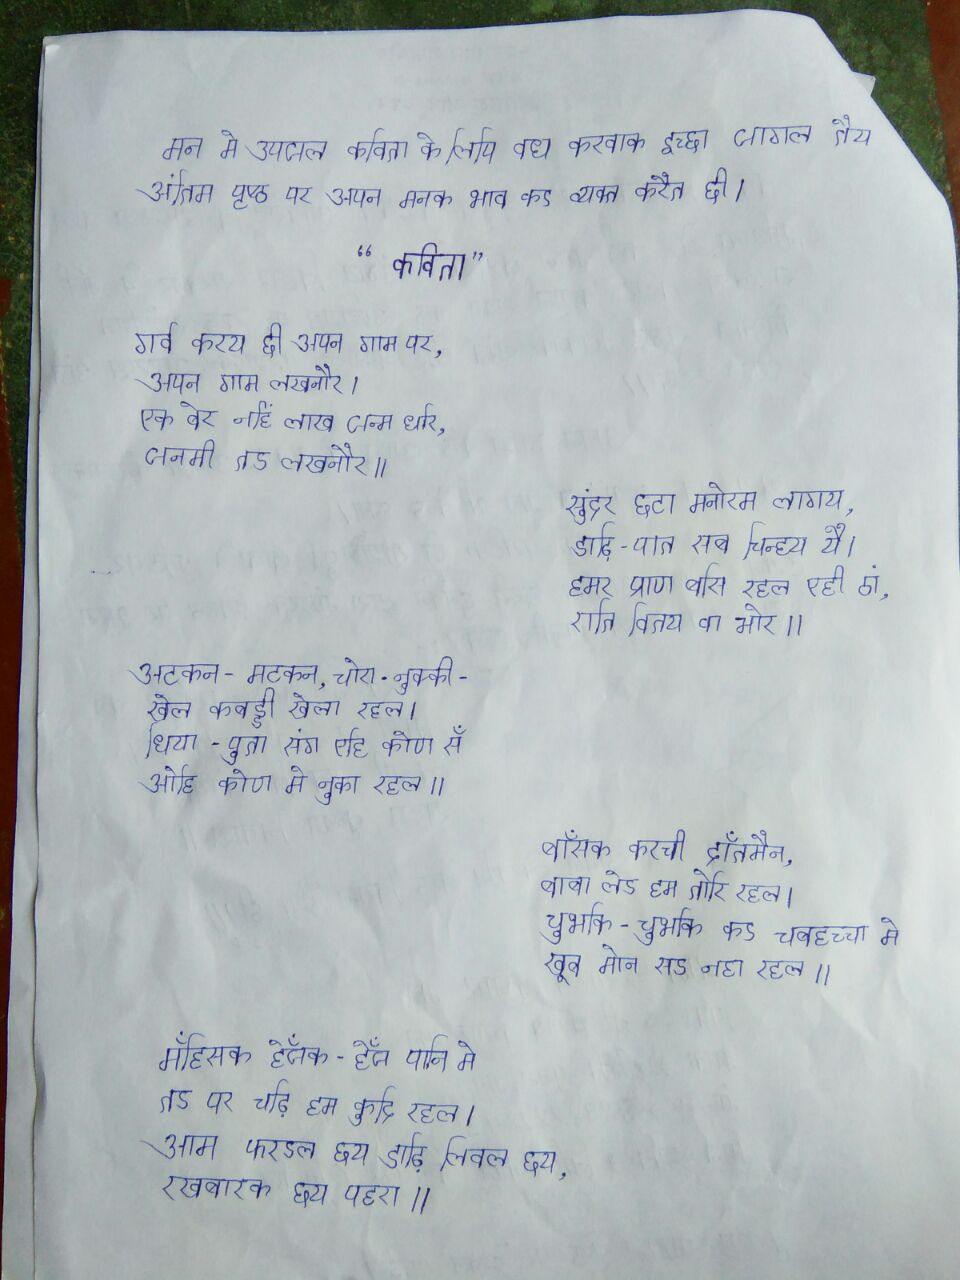 मन मे उपजल कविता के लिपि वध करवाक इच्छा जागल तैय
अंतिम पृष्ठ पर अपन मनक भाव कऽ व्यक्त करैत छी।
“ कविता”
गर्व करय छी अपन गाम पर,
अपन गाम लखनौर।
एक बेर नहिं लाख जन्म धरि,
जनमी तऽ लखनौर॥
सुंदर छटा मनोरम लागय,
डाढ़ि-पात सब चिन्हय यै।
हमर प्राण बसि रहल एही ठां,
राति वितय वा भोर॥
अटकन-मटकन, चोरा-नुक्की-
खेल कबड्डी खेला रहल।
धिया-पुता संग एहि कोण सँ
ओहि कोण मे नुका रहल॥
बाँसक करची दाँतमैन,
बाबा लेऽ हम तोरि रहल।
चुभकि-चुभकि कऽ चबहच्चा मे
खूब मोन सऽ नहा रहल॥
मँहिसक हेँजक-हेँज पानि मे
तऽ पर चढ़ि हम कुदि रहल।
आम फरऽल छय डाढ़ि लिवल छय,
रखबारक छय पहरा॥